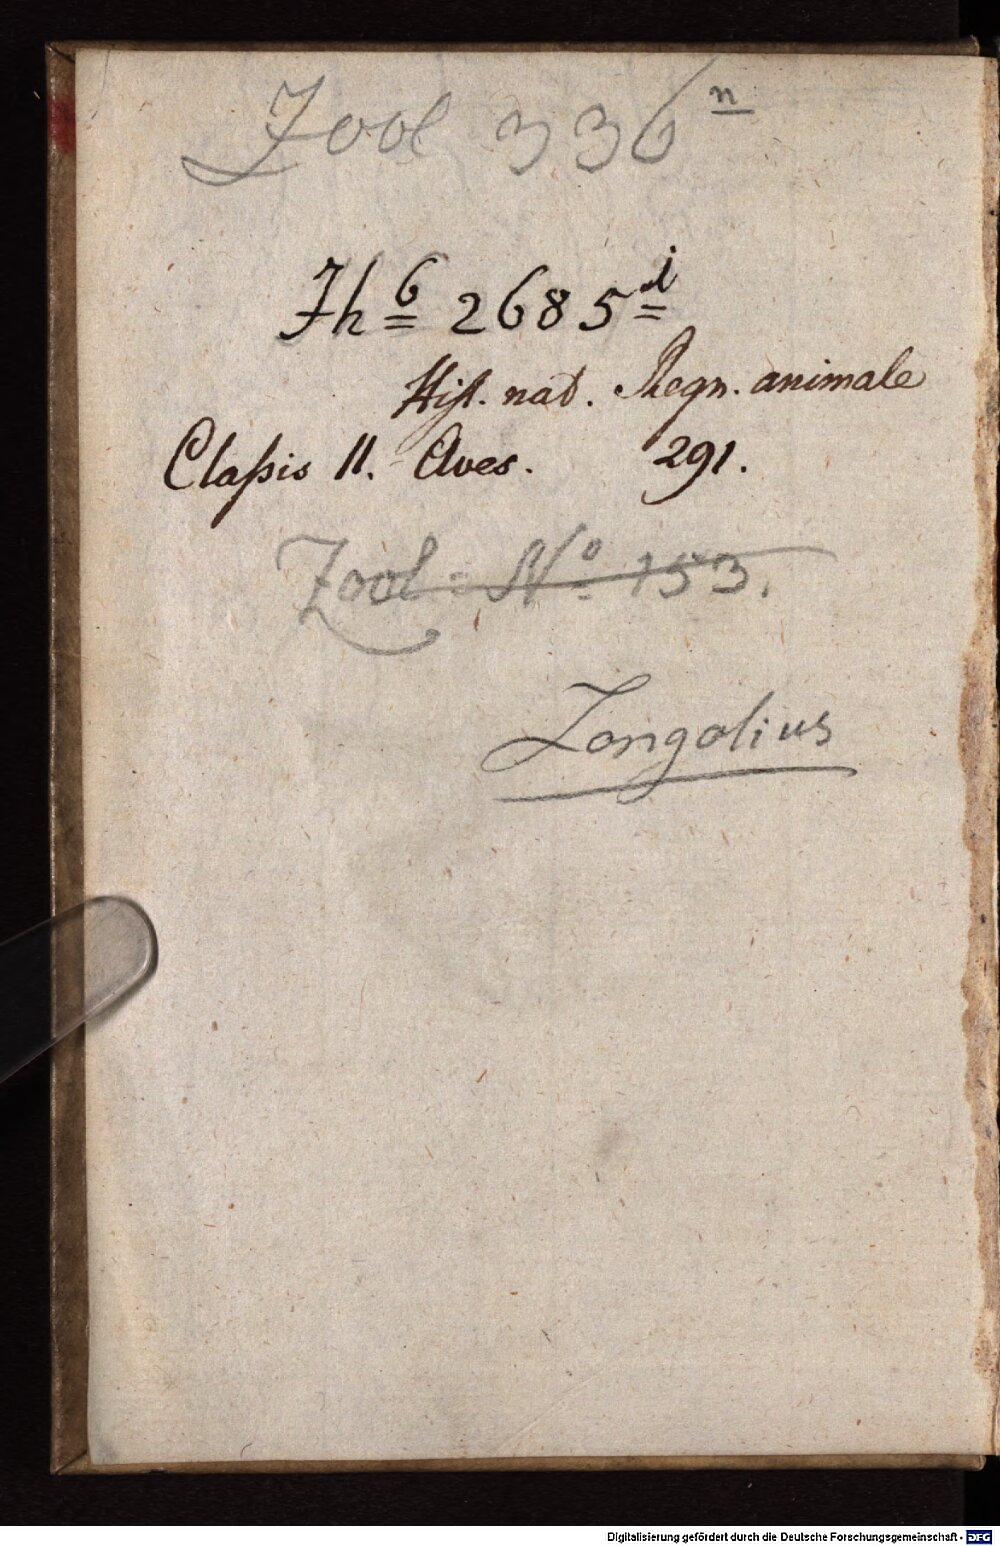 Zool 336ⁿ
Zh 6 2685 d
Hist. nat. Regn. animale
Classis II. Aves. 291.
Zool. Nº 153.
Longolius
Digitalisierung gefördert durch die Deutsche Forschungsgemeinschaft - DFG